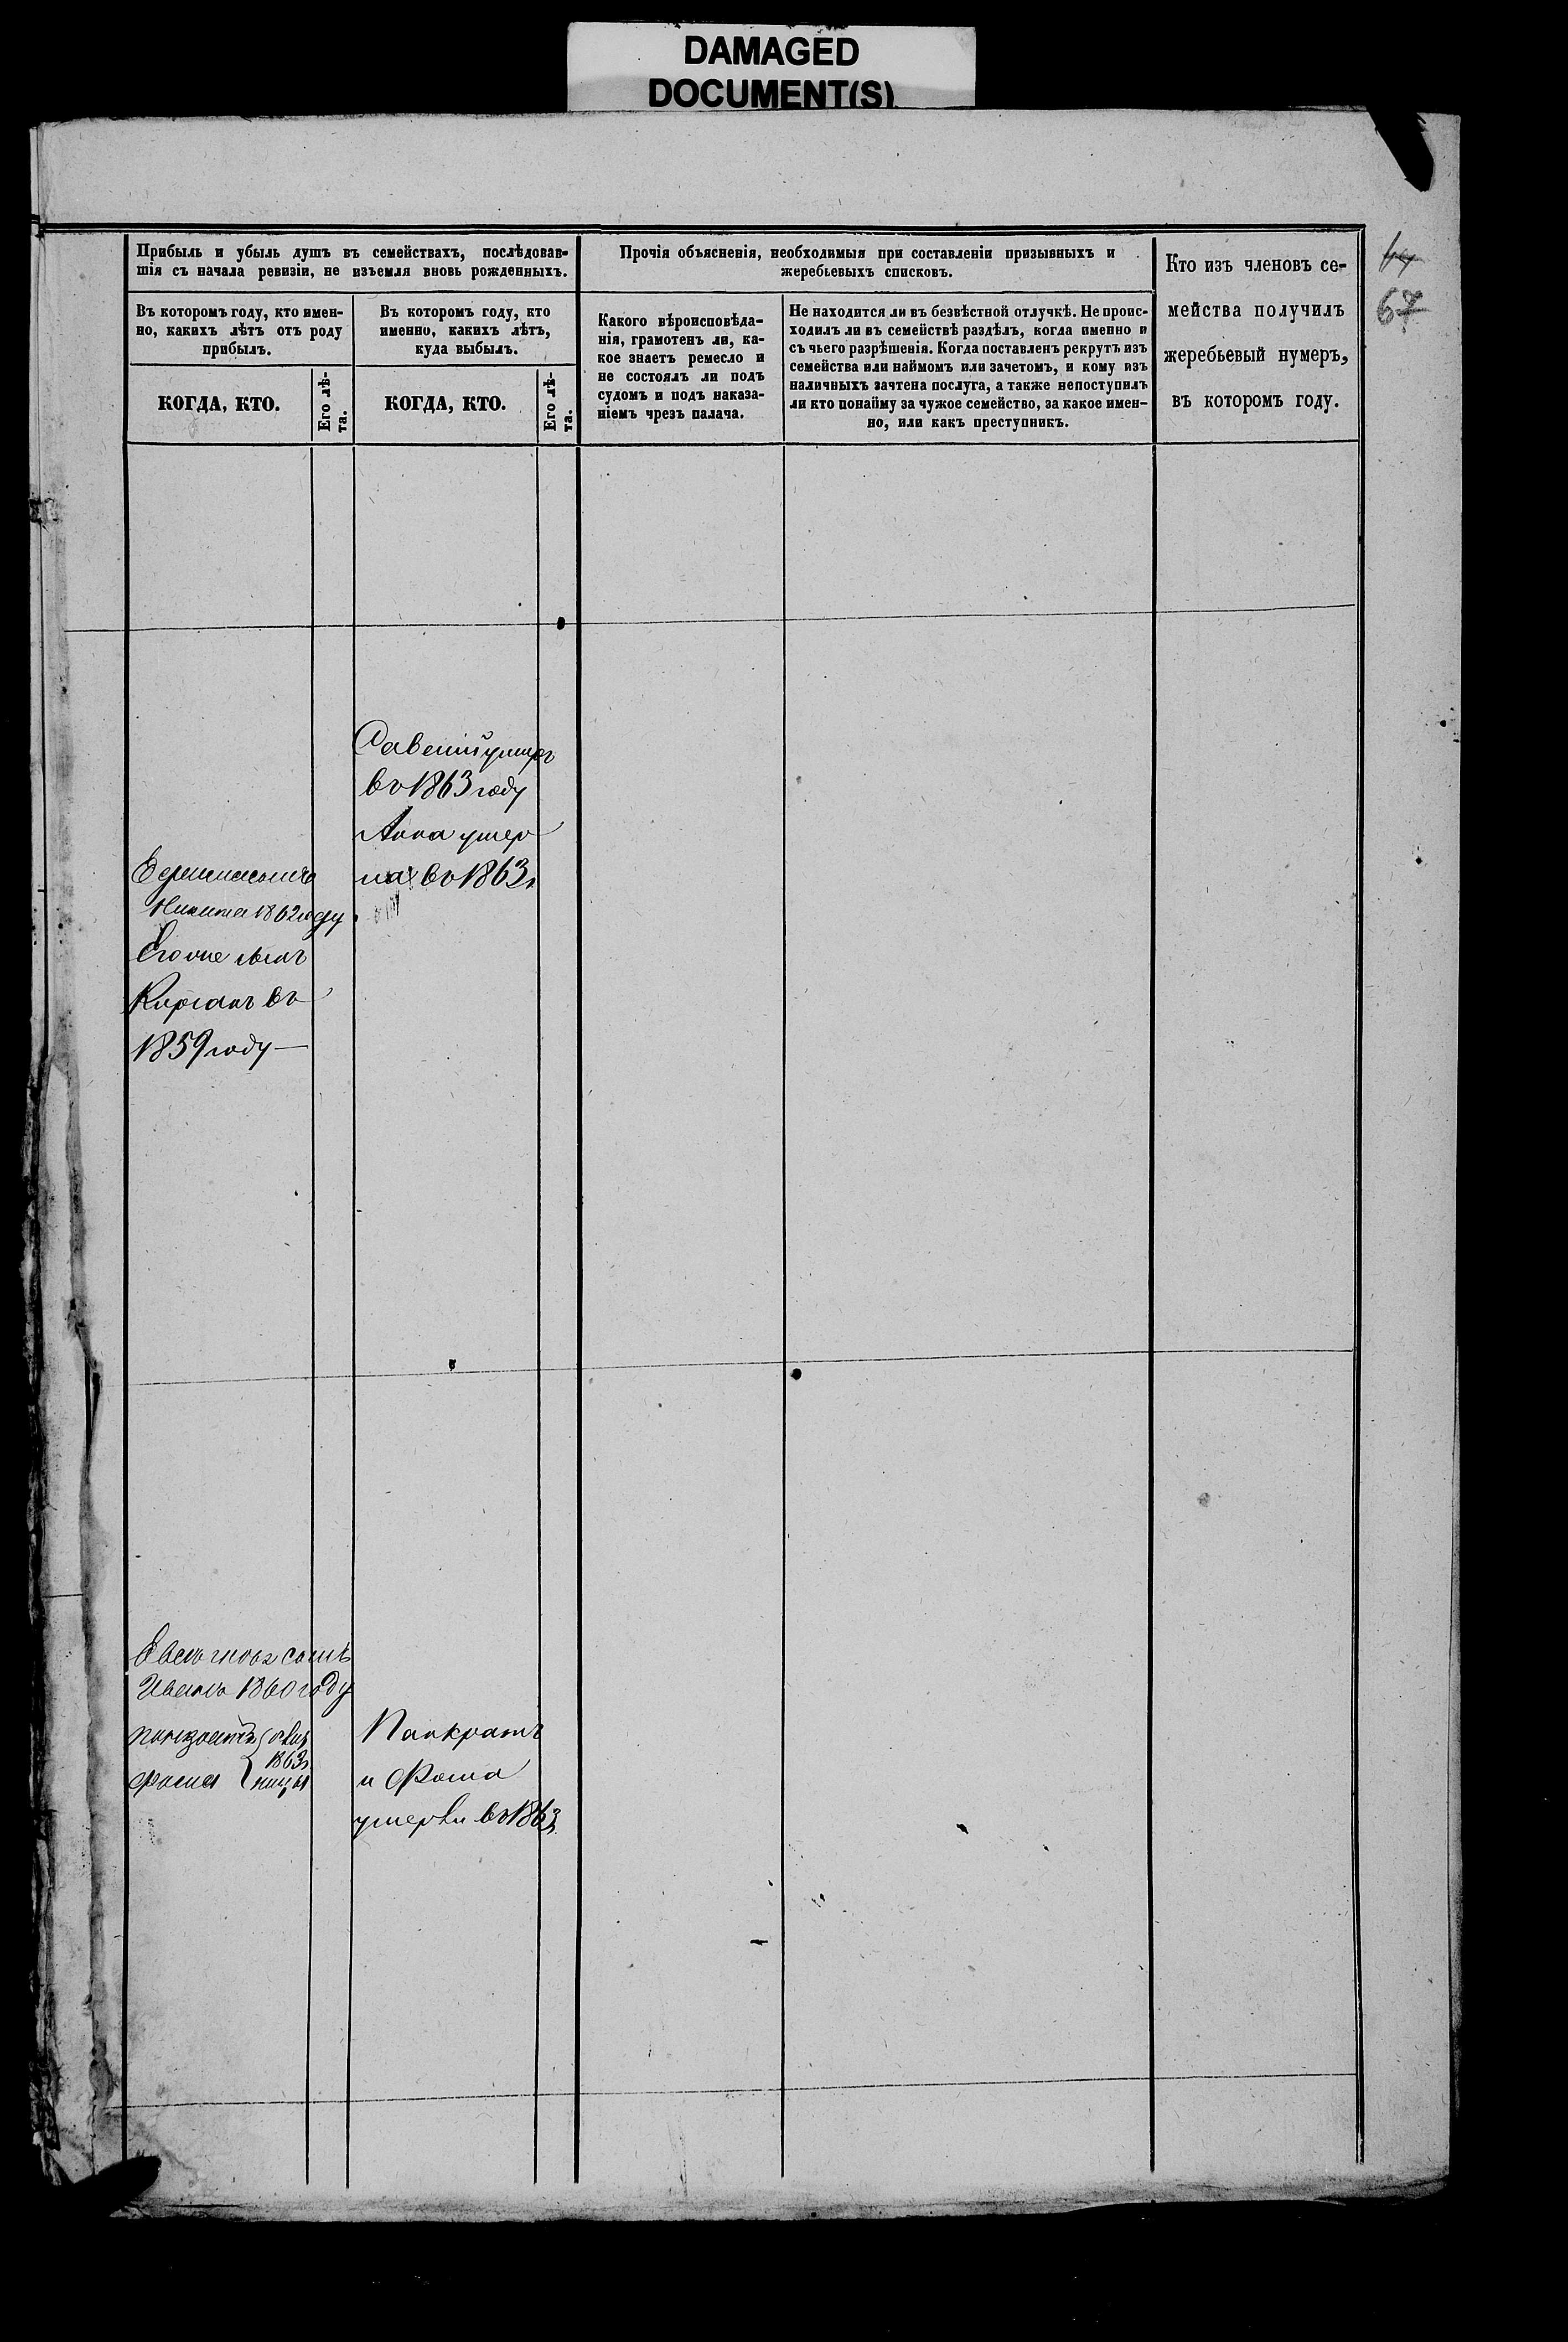 DAMAGED
DOCUMENT(S)
Прибыль и убыль душъ въ семействахъ, послѣдовав-
шія съ начала ревизіи, не изъемля вновь рожденныхъ.
Въ которомъ году, кто имен-
но, какихъ лѣтъ отъ роду
прибылъ.
КОГДА, КТО.
Его лѣ-
та.
Въ которомъ году, кто
именно, какихъ лѣтъ,
куда выбылъ.
КОГДА, КТО.
Его лѣ-
та.
Прочія объясненія, необходимыя при составленіи призывныхъ и
жеребьевыхъ списковъ.
Какого вѣроисповѣда-
нія, грамотенъ ли, ка-
кое знаетъ ремесло и
не состоялъ ли подъ
судомъ и подъ наказа-
ніемъ чрезъ палача.
Не находится ли въ безвѣстной отлучкѣ. Не проис-
ходилъ ли въ семействѣ раздѣлъ, когда именно и
съ чьего разрѣшенія. Когда поставленъ рекрутъ изъ
семейства или наймомъ или зачетомъ, и кому изъ
наличныхъ зачтена послуга, а также непоступилъ
ли кто понайму за чужое семейство, за какое имен-
но, или какъ преступникъ.
Кто изъ членовъ се-
мейства получилъ
жеребьевый нумеръ,
въ которомъ году.
67
Савелій умеръ
въ 1863 году
Анна умер
ла въ 1863 г
Никита 1862 году
Его же сынъ
Кирианъ въ
1859 году
сынъ
Иванъ 1860 году
1863 г
Фома
Панкратъ
и Фома
умерли въ 1863